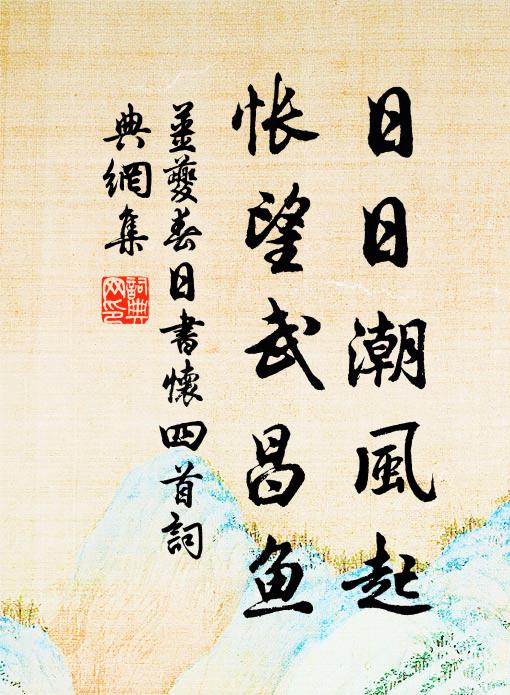 日日潮風起
悵望武昌鱼
姜夔春日書懷四首詞
典網集
詞典
网印